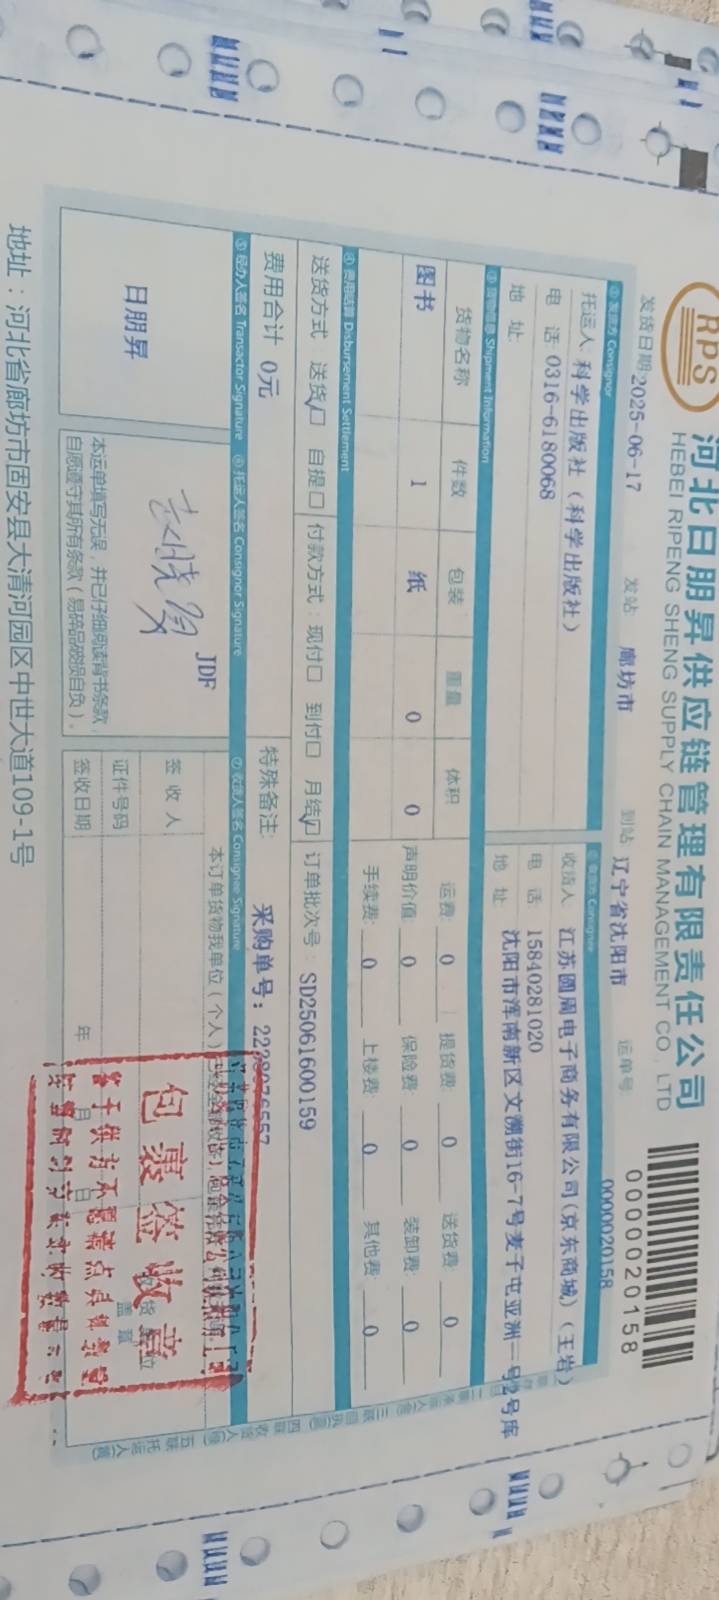 RPS
河北日朋昇供应链管理有限责任公司
HEBEI RIPENG SHENG SUPPLY CHAIN MANAGEMENT CO.,LTD
0000020158
发货日期 2025-06-17 发站: 廊坊市 到站: 辽宁省沈阳市 运单号: 0000020158
① 发货方 Consignor
托运人: 科学出版社（科学出版社）
电 话: 0316-6180068
地 址:
② 收货方 Consignee
收货人: 江苏圆周电子商务有限公司(京东商城)(王岩)
电 话: 15840281020
地 址: 沈阳市浑南新区文溯街16-7号麦子屯亚洲一号2号库
③ 货物信息 Shipment Information
货物名称 件数 包装 重量 体积
图书 1 纸 0 0
运费: 0 提货费: 0 送货费: 0
声明价值: 0 保险费: 0 装卸费: 0
手续费: 0 上楼费: 0 其他费: 0
④ 费用结算 Disbursement Settlement
送货方式: 送货☑ 自提□ 付款方式: 现付□ 到付□ 月结☑ 订单批次号: SD25061600159
费用合计: 0元
特殊备注: 采购单号:
⑤ 经办人签名 Transactor Signature
日朋昇
⑥ 托运人签名 Consignor Signature
JDF
本运单填写无误，并已仔细阅读背书条款，
自愿遵守其所有条款（易碎品破损自负）。
⑦ 收货人签名 Consignee Signature
本订单货物我单位（个人）
签 收 人
证件号码
签收日期 年 月 日
包裹签收章
地址：河北省廊坊市固安县大清河园区中世大道109-1号